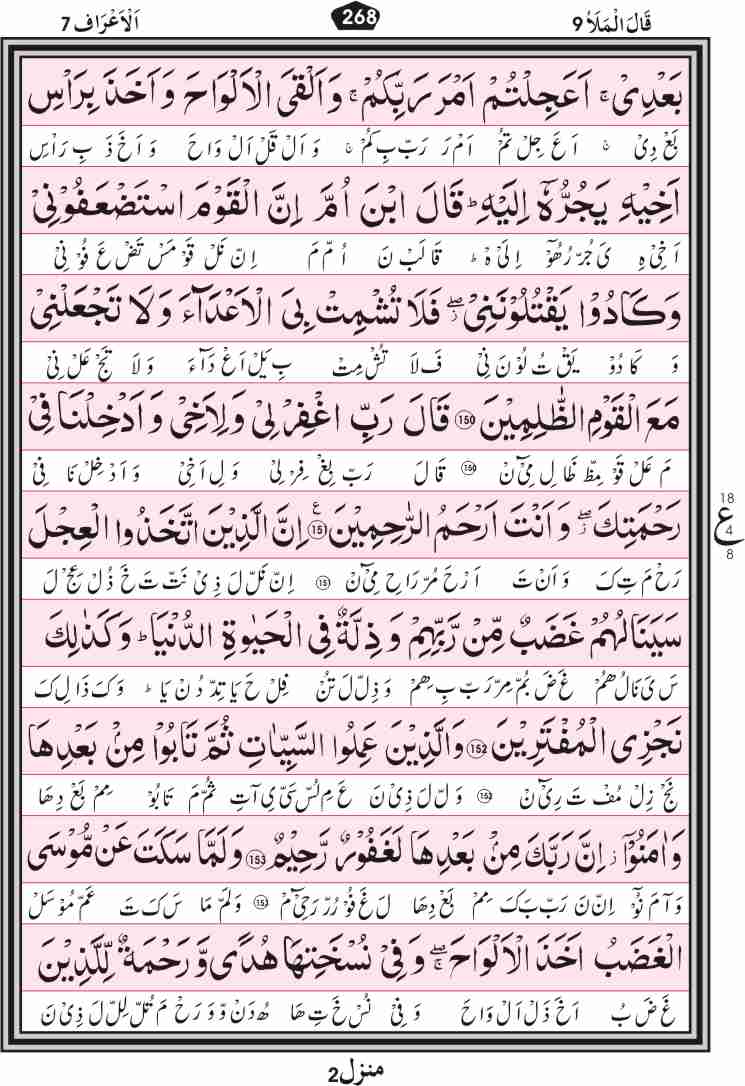 قَالَ الْمَلَاُ 9 268 اَلْاَعْرَاف 7
بَعْدِىْ ۚ اَعَجِلْتُمْ اَمْرَ رَبِّكُمْ ۚ وَاَلْقَى الْاَلْوَاحَ وَاَخَذَ بِرَاْسِ
بَعْ دِىْ ۚ اَ عَ جِلْ تُمْ اَمْ رَ رَبّ بِ كُمْ ۚ وَ اَلْ قَلْ اَلْ وَاحَ وَ اَ خَ ذَ بِ رَاْسِ
اَخِيْهِ يَجُرُّهٗۤ اِلَيْهِ ؕ قَالَ ابْنَ اُمَّ اِنَّ الْقَوْمَ اسْتَضْعَفُوْنِىْ
اَ خِىْ هِ ىَ جُرّ رُ هُوْٓ اِ لَىْ هْ ؕ قَا لَبْ نَ اُمّ مَ اِنّ نَلْ قَوْ مَسْ تَضْ عَ فُوْ نِىْ
وَكَادُوْا يَقْتُلُوْنَنِىْ ۖ فَلَا تُشْمِتْ بِىَ الْاَعْدَآءَ وَلَا تَجْعَلْنِىْ
وَ كَا دُوْ يَقْ تُ لُوْ نَ نِىْ فَ لَا تُشْ مِتْ بِ يَلْ اَعْ دَآءَ وَ لَا تَجْ عَلْ نِىْ
مَعَ الْقَوْمِ الظّٰلِمِيْنَ 150 قَالَ رَبِّ اغْفِرْ لِىْ وَلِاَخِىْ وَاَدْخِلْنَا فِىْ
مَ عَلْ قَوْ مِظّ ظَا لِ مِىْٓ نْ 150 قَا لَ رَبّ بِغْ فِرْ لِىْ وَ لِ اَ خِىْ وَ اَدْ خِلْ نَا فِىْ
رَحْمَتِكَ ۖ وَاَنْتَ اَرْحَمُ الرّٰحِمِيْنَ 15 ع اِنَّ الَّذِيْنَ اتَّخَذُوا الْعِجْلَ
رَحْ مَ تِ كَ وَ اَنْ تَ اَرْ حَ مُرّ رَا حِ مِىْٓ نْ 15 اِنّ نَلّ لَ ذِىْ نَتّ تَ خَ ذُلْ عِجْ لَ
سَيَنَالُهُمْ غَضَبٌ مِّنْ رَّبِّهِمْ وَذِلَّةٌ فِى الْحَيٰوةِ الدُّنْيَا ؕ وَكَذٰلِكَ
سَ ىَ نَا لُ هُمْ غَ ضَ بُمّ مِرّ رَبّ بِ هِمْ وَ ذِلّ لَ تُنْ فِلْ حَ يَا تِدّ دُنْ يَا ؕ وَ كَ ذَا لِ كَ
نَجْزِى الْمُفْتَرِيْنَ 152 وَالَّذِيْنَ عَمِلُوا السَّيِّاٰتِ ثُمَّ تَابُوْا مِنْۢ بَعْدِهَا
نَجْ زِلْ مُفْ تَ رِىْٓ نْ 15 وَلّ لَ ذِىْ نَ عَ مِ لُسّ سَىّ ىِ آتِ ثُمّ مَ تَا بُوْ مِمْ بَعْ دِهَا
وَاٰمَنُوْۤا ؗ اِنَّ رَبَّكَ مِنْۢ بَعْدِهَا لَغَفُوْرٌ رَّحِيْمٌ 153 وَلَمَّا سَكَتَ عَنْ مُّوْسَى
وَ آمَ نُوْٓ اِنّ نَ رَبّ بَ كَ مِمْ بَعْ دِهَا لَ غَ فُوْ رُرّ رَحِىْٓ مْ 15 وَلَمّ مَا سَ كَ تَ عَمّ مُوْسَلْ
الْغَضَبُ اَخَذَ الْاَلْوَاحَ ۖ وَفِىْ نُسْخَتِهَا هُدًى وَّرَحْمَةٌ لِّلَّذِيْنَ
غَ ضَ بُ اَ خَ ذَلْ اَلْ وَاحَ وَ فِىْ نُسْ خَ تِ هَا هُ دَنْ وَّ وَ رَحْ مَ تُلّ لِلّ لَ ذِىْ نَ
18
ع
4
8
منزل2